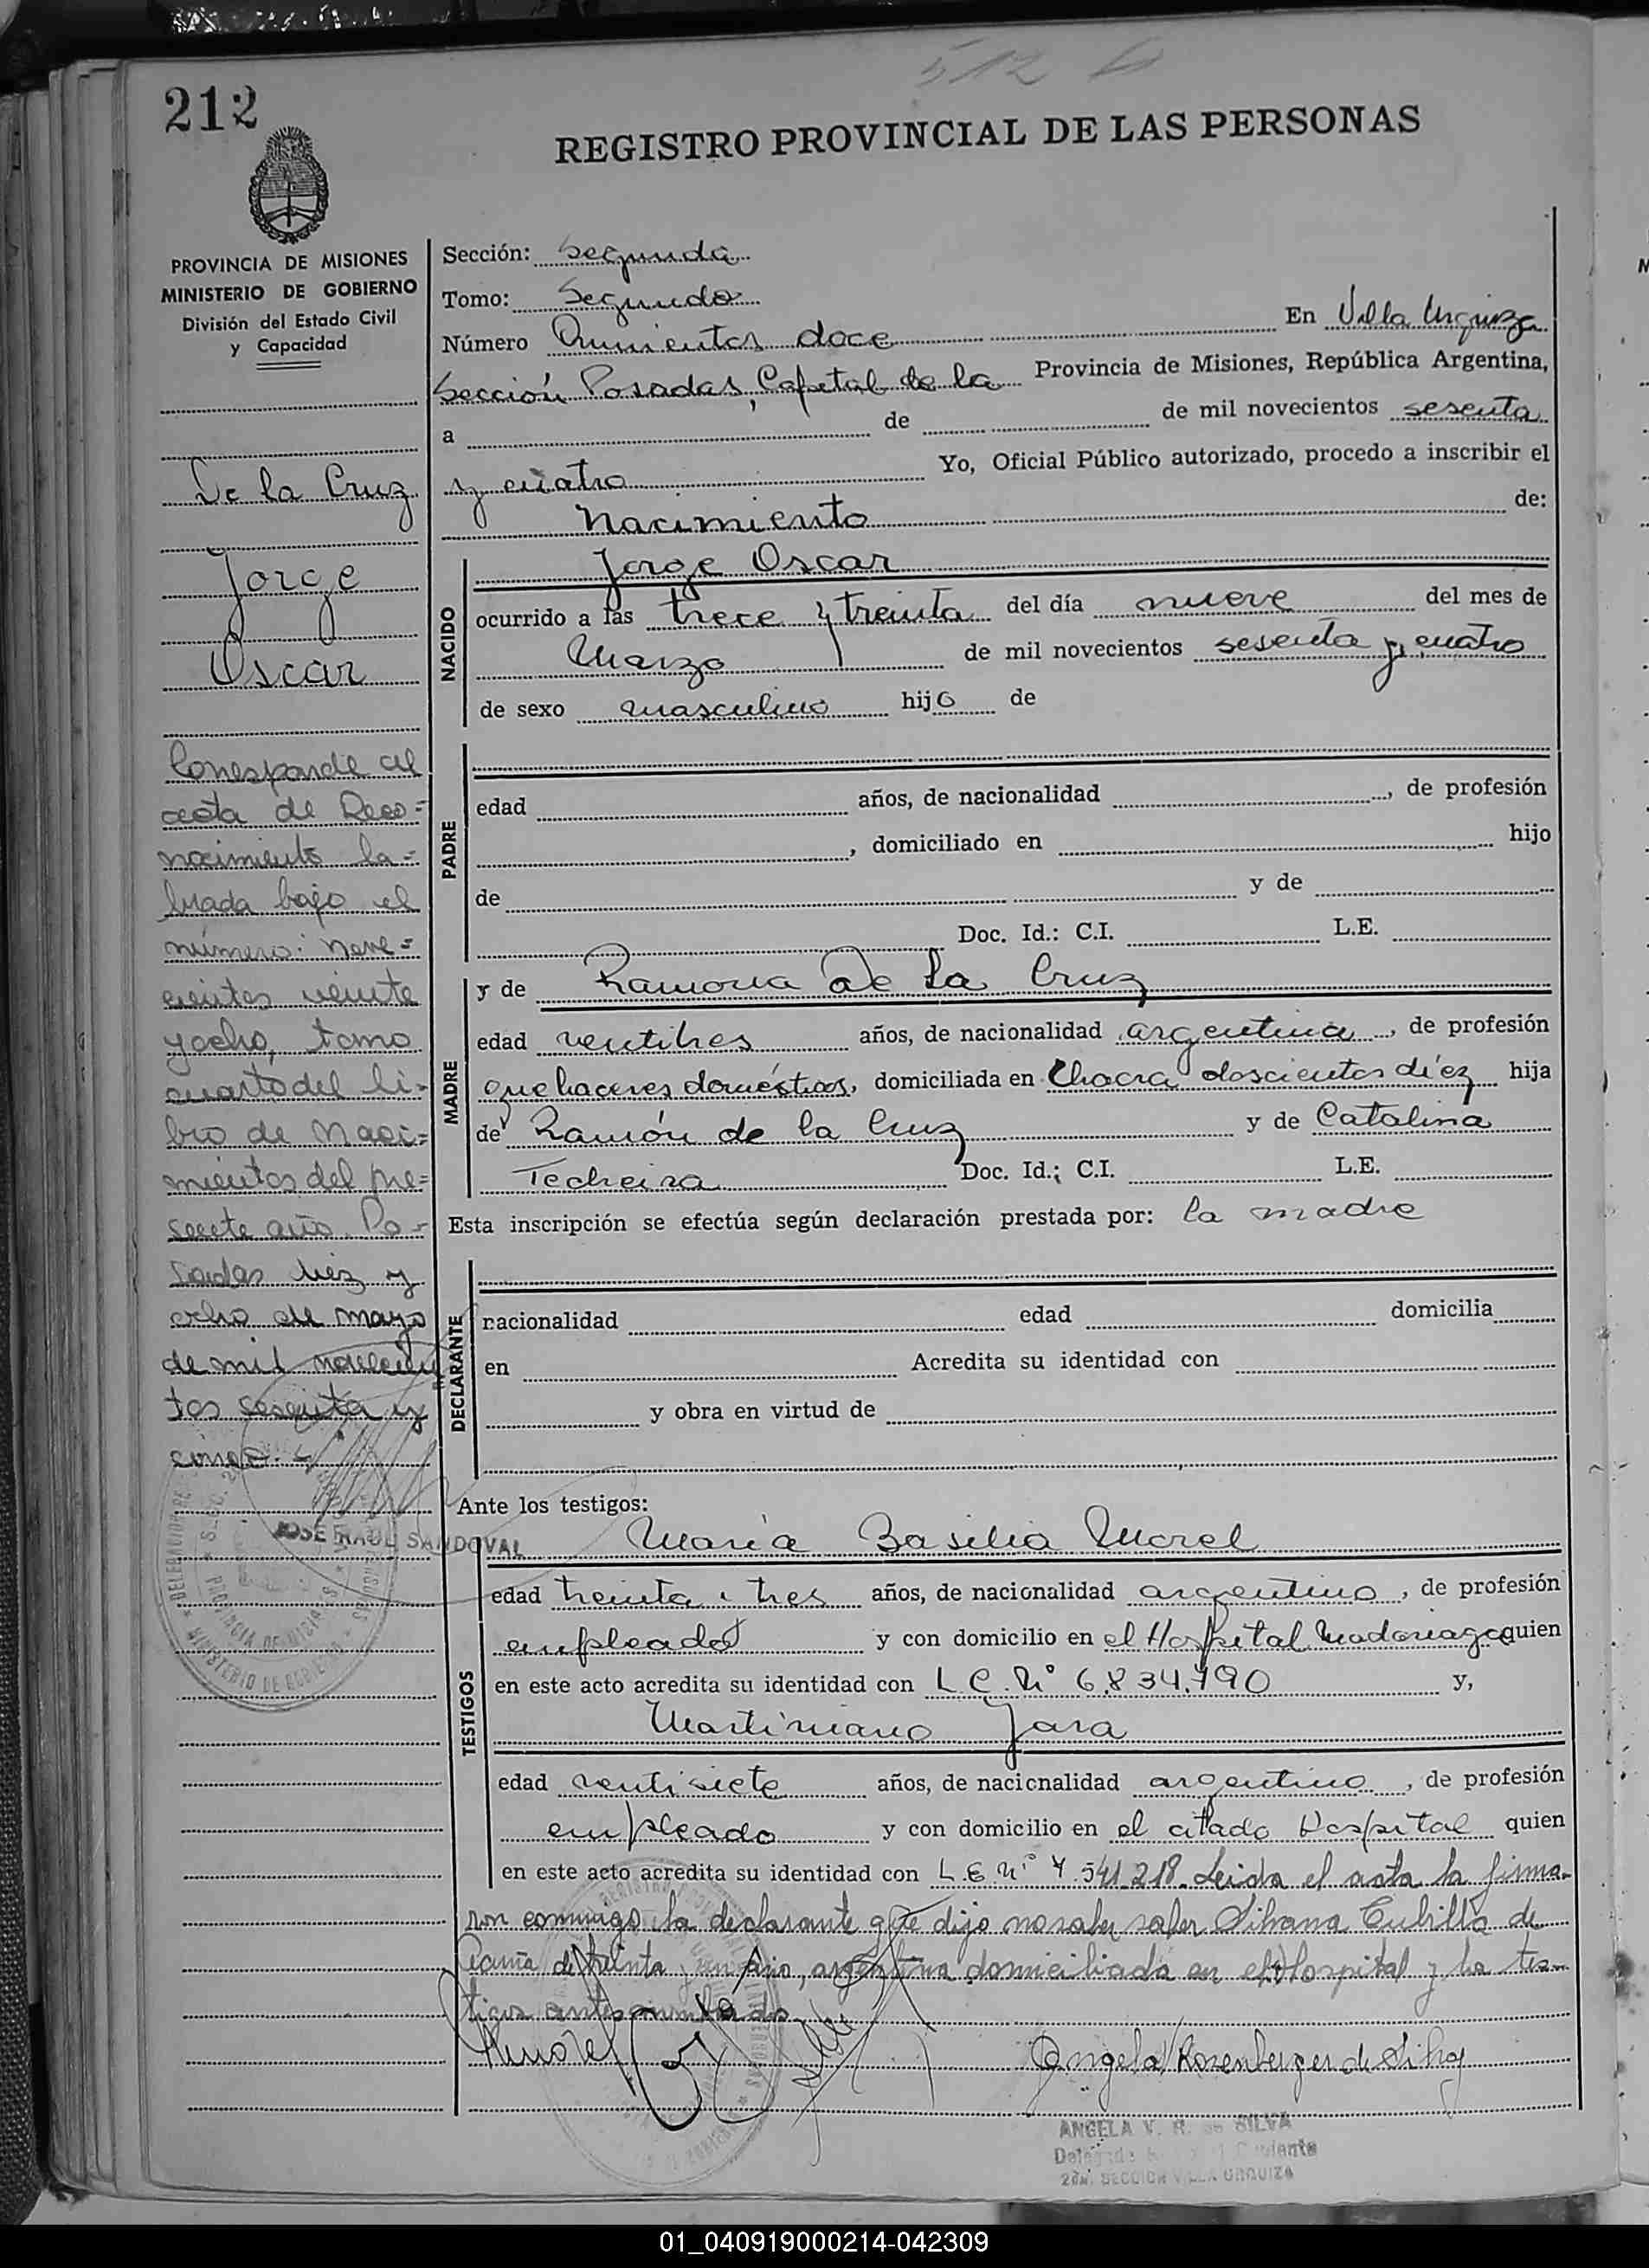 512
212
REGISTRO PROVINCIAL DE LAS PERSONAS
PROVINCIA DE MISIONES
MINISTERIO DE GOBIERNO
División del Estado Civil
y Capacidad
De la Cruz
Jorge
Oscar
Corresponde al
acta de Reco=
nocimiento la=
brada bajo el
número: nove=
cientos veinte
y ocho, tomo
cuarto del li-
bro de Naci=
mientos del pre=
sente año. Po-
sadas diez y
ocho de mayo
de mil novecien
tos sesenta y
cinco.
JOSE RAUL SANDOVAL
Sección: Segunda
Tomo: Segundo
Número Quinientos doce En Villa Urquiza
Sección Posadas, Capital de la Provincia de Misiones, República Argentina,
a de de mil novecientos sesenta
y cuatro Yo, Oficial Público autorizado, procedo a inscribir el
Nacimiento de:
NACIDO
Jorge Oscar
ocurrido a las trece y treinta del día nueve del mes de
Marzo de mil novecientos sesenta y cuatro
de sexo masculino hijo de
PADRE
edad años, de nacionalidad , de profesión
, domiciliado en hijo
de y de
Doc. Id.: C.I. L.E.
MADRE
y de Ramona De la Cruz
edad ventitres años, de nacionalidad argentina, de profesión
quehaceres domésticos, domiciliada en Chacra doscientos diéz hija
de Ramón de la Cruz y de Catalina
Techeira Doc. Id.; C.I. L.E.
Esta inscripción se efectúa según declaración prestada por: la madre
DECLARANTE
racionalidad edad domicilia
en Acredita su identidad con
y obra en virtud de
Ante los testigos:
TESTIGOS
Maria Basilia Morel
edad treinta i tres años, de nacionalidad argentino, de profesión
empleada y con domicilio en el Hospital Madariaga quien
en este acto acredita su identidad con L.C. Nº 6.834.790 y,
Martiniano Jara
edad ventisiete años, de nacicnalidad argentino, de profesión
empleado y con domicilio en el citado Hospital quien
en este acto acredita su identidad con L.E. Nº 7.541.218. Leida el acta la firma-
ron conmigo la declarante que dijo no saber
de treinta y un año, argentina domiciliada en el Hospital y los tes-
tigos
Morel
Angela Rosenberger de Silva
ANGELA V. R. de SILVA
2da. SECCION VILLA URQUIZA
01_040919000214-042309